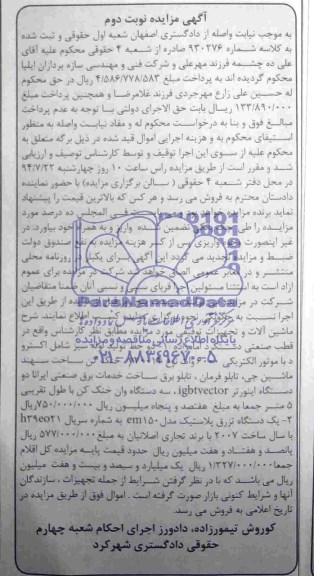 آگهی مزایده نوبت دوم
به موجب نیابت واصله از دادگستری اصفهان شعبه اول حقوقی و ثبت شده
به کلاسه شماره ۹۳۰۲۷۶ صادره از شعبه ۴ حقوقی محکوم علیه آقای
علی ده چشمه فرزند مهرعلی و شرکت فنی و مهندسی سازه پردازان ایلیا
محکوم گردیده اند به پرداخت مبلغ ۴/۵۸۶/۷۷۸/۵۸۳ ریال در حق محکوم
له حسین علی زارع مهرجردی فرزند غلامرضا و همچنین پرداخت مبلغ
۱۳۳/۸۹۰/۰۰۰ ریال بابت حق الاجرای دولتی با توجه به عدم پرداخت
مبالغ فوق و بنا به درخواست محکوم له و مفاد نیابت واصله به منظور
استیفای محکوم به و هزینه اجرایی اموال قید شده در ذیل برگه متعلق به
محکوم علیه از سوی این اجرا توقیف و توسط کارشناس توصیف و ارزیابی
شد و مقرر است از طریق مزایده راس ساعت ۱۰ روز چهارشنبه ۹۴/۷/۲۲
در محل دفتر شعبه ۴ حقوقی ( سالن برگزاری مزایده) با حضور نماینده
دادستان محترم به فروش می رسد و هر کس که بالاترین قیمت را پیشنهاد
نماید برنده مزایده خواهد ده درصد مورد
مزایده را واریز و به همراه خود بیاورد. در
غیر اینصورت واریزی پس از کسر هزینه مزایده به نفع صندوق دولت
ضبط و مزایده تجدید می گردد این آگهی برای یکبار در روزنامه محلی
منتشر و در معابر عمومی الصاق خواهد شد شرکت در مزایده برای عموم
آزاد است به استثنا مسئولین اجرا اقربای سببی و نسبی آنان ضمنا متقاضیان
شرکت در مزایده از طریق این
اجرا نسبت به اطلاع نمایند. شرح
ماشین آلات و تجهیزات توقیفی مورد مزایده مطابق نظر کارشناس واقع در
قطب صنعتی
۰۲۱-۸۸۳۴۹۶۷۰-۵
ParsNamadData
ماشین جی، تابلو فرمان ، تابلو برق ساخت خدمات برق صنعتی ایرانا دو
دستگاه اینورتر igbtvector، سه دستگاه وان خنک کن با طول تقریبی
۵ متر جمعا به مبلغ هفتصد و پنجاه میلیون ریال ۷۵۰/۰۰۰/۰۰۰ ریال
۲- یک دستگاه تزریق پلاستیک مدل em150 به شماره سریال h39e021
با سال ساخت 2007 با برند تجاری اصلانیان به مبلغ ۵۷۷/۰۰۰/۰۰۰ ریال
پانصد و هفتاد و هفت میلیون ریال حدود قیمت پایه مزایده کل اقلام
جمعا ۱/۳۲۷/۰۰۰/۰۰۰ ریال یک میلیارد و سیصد و بیست و هفت میلیون
ریال می باشد که با در نظر گرفتن شرایط از جمله تجهیزات ، سازندگان
آنها و شرایط کنونی بازار صورت گرفته است . اموال فوق از طریق مزایده در
تاریخ اعلامی به فروش می رسد.
کوروش تیمورزاده، دادورز اجرای احکام شعبه چهارم
حقوقی دادگستری شهرکرد